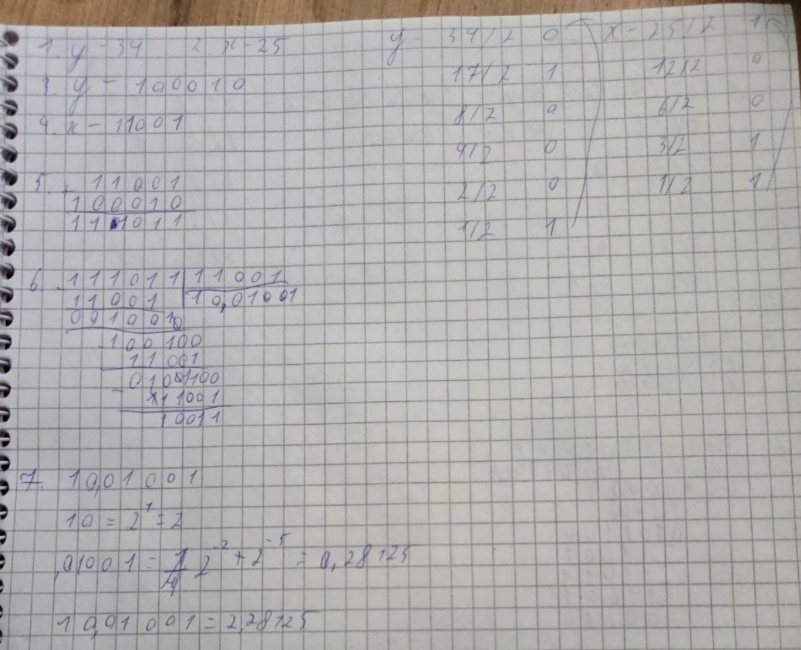 1. y - 34 2. x - 25
3. y - 100010
4. x - 11001
5. 11001
100010
111011
6. 111011 11001
11001 10,01001
0010010
- 100100
11001
- 11001
10011
7. 10,01001
10 = 2¹ = 2
,01001 = 2⁻² + 2⁻⁵ = 0,28125
10,01001 = 2,28125
y 34/2 0
17/2 1
8/2 0
4/2 0
2/2 0
1/2 1
x - 25/2 1
12/2 0
6/2 0
3/2 1
1/2 1